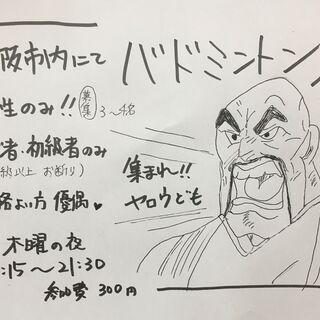 バドミントン
阪市内にて
性のみ!! 募集 3~4名
者・初級者のみ
級以上 お断り)
よい方 優遇♥
木曜の夜
:15~21:30
参加費 300円
集まれ!!
ヤロウども